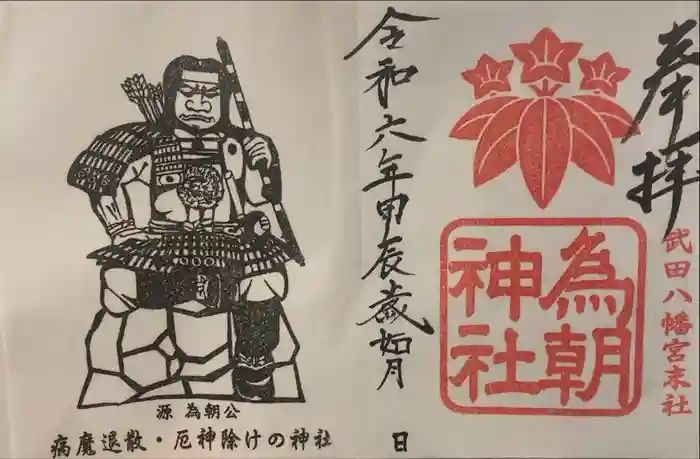 奉拝
武田八幡宮末社
為朝
神社
令和六年甲辰歳如月
日
源 為朝公
病魔退散・厄神除けの神社